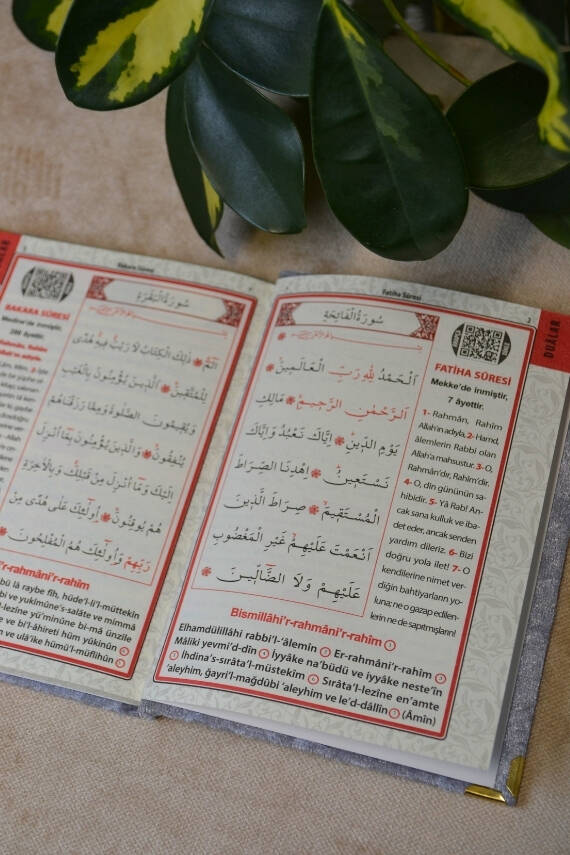 Fatiha Sûresi
2
DUÂLAR
سُورَةُ الْفَاتِحَةِ
اَلْحَمْدُ لِلّٰهِ رَبِّ الْعَالَمِينَ
اَلرَّحْمٰنِ الرَّحِيمِ مَالِكِ
يَوْمِ الدِّينِ اِيَّاكَ نَعْبُدُ وَاِيَّاكَ
نَسْتَعِينُ اِهْدِنَا الصِّرَاطَ
الْمُسْتَقِيمَ صِرَاطَ الَّذِينَ
اَنْعَمْتَ عَلَيْهِمْ غَيْرِ الْمَغْضُوبِ
عَلَيْهِمْ وَلَا الضَّالِّينَ
FATİHA SÛRESİ
Mekke'de inmiştir,
7 âyettir.
1- Rahmân, Rahîm
Allah'ın adıyla, 2- Hamd,
âlemlerin Rabbi olan
Allah'a mahsustur. 3- O,
Rahmân'dır, Rahîm'dir.
4- O, din gününün sa-
hibidir. 5- Yâ Rab! An-
cak sana kulluk ve iba-
det eder, ancak senden
yardım dileriz. 6- Bizi
doğru yola ilet! 7- O
kendilerine nimet ver-
diğin bahtiyarların yo-
luna; ne o gazap edilen-
lerin ne de sapıtmışların!
Bismillâhi'r-rahmâni'r-rahîm 1
Elhamdülillâhi rabbi'l-'âlemîn 2 Er-rahmâni'r-rahîm 3
Mâliki yevmi'd-dîn 4 İyyâke na'büdü ve iyyâke neste'în
5 İhdina's-sırâta'l-müstekîm 6 Sırâta'l-lezîne en'amte
'aleyhim, ğayri'l-mağdûbi 'aleyhim ve le'd-dâllîn 7 (Âmîn)
Bakara Sûresi
3
سُورَةُ الْبَقَرَةِ
الٓمٓ ذٰلِكَ الْكِتَابُ لَا رَيْبَ فِيهِ هُدًى
لِلْمُتَّقِينَ اَلَّذِينَ يُؤْمِنُونَ بِالْغَيْبِ
وَيُقِيمُونَ الصَّلٰوةَ وَمِمَّا رَزَقْنَاهُمْ
يُنْفِقُونَ وَالَّذِينَ يُؤْمِنُونَ بِمَا اُنْزِلَ
اِلَيْكَ وَمَا اُنْزِلَ مِنْ قَبْلِكَ وَبِالْاٰخِرَةِ
هُمْ يُوقِنُونَ اُولٰئِكَ عَلٰى هُدًى مِنْ
رَبِّهِمْ وَاُولٰئِكَ هُمُ الْمُفْلِحُونَ
BAKARA SÛRESİ
Medine'de inmiştir,
286 âyettir.
rahmâni'r-rahîm
bü lâ raybe fîh, hüde'l-li'l-müttekîn
bi ve yukîmûne's-salâte ve mimmâ
l-lezîne yü'minûne bi-mâ ünzile
e ve bi'l-âhireti hüm yûkınûn
m ve ulâike hümü'l-müflihûn